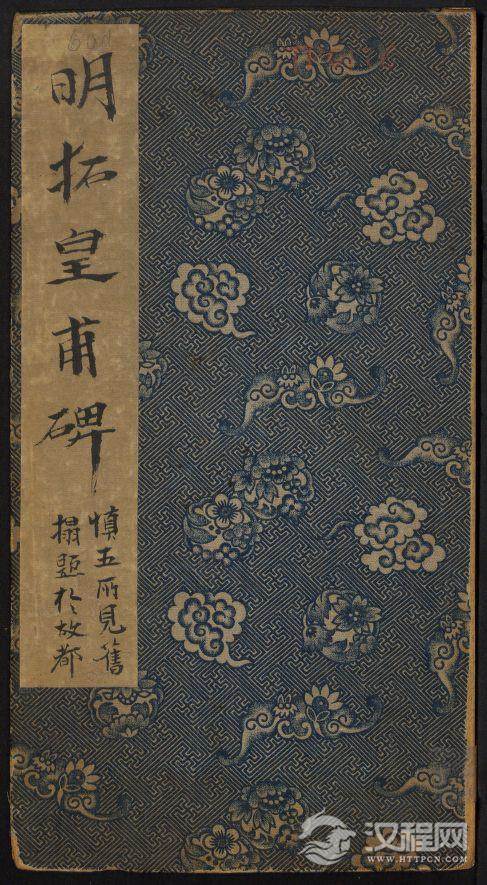 明拓皇甫碑
慎五所見舊
搨題於故都
汉程网
WWW.HTTPCN.COM